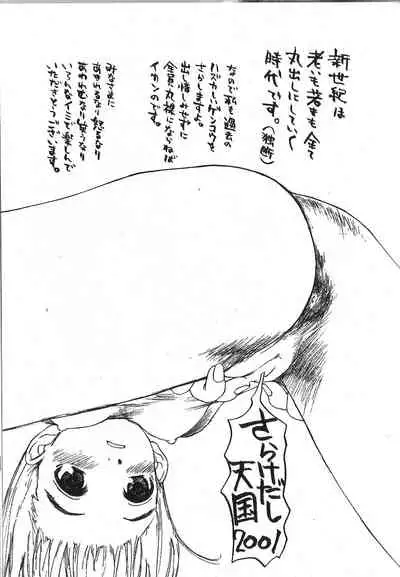 新世紀は
老いも若きも全て
丸出しにしていく
時代です。(独断)
なので私も過去の
ハズカしいゲンコウを
さらしますよ。
出し惜しみせずに
全員丸裸にならねば
イカンのです。
みなさまに
あわれるなり怒るなり
あわれむなり笑うなり
いろんなイミで楽しんで
いただきとうございます。
さらけだし
天国
2001